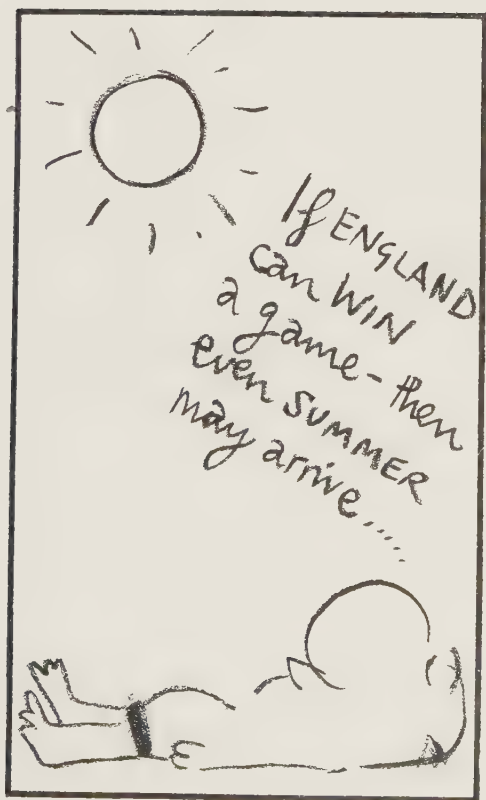 If ENGLAND
can WIN
a game - then
even SUMMER
may arrive....